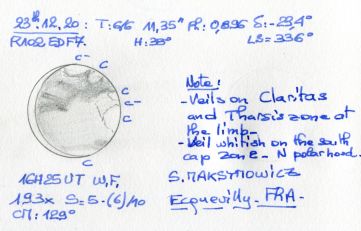 23th.12.20: T:6/6 11,35" Ph:0,896 δ:-23,4°
R102 EDF7. H:38° LS=336°
C-
C
C
C-
C
C
Note:
-Veils on Claritas
and Tharsis zone at
the limb-
-Veil whitish on the south
cap zone- N polar hood..
16H25 UT W.F.
193x S=5-(6)/10
CM: 129°
S.MAKSYMOWICZ
Ecquevilly- FRA-